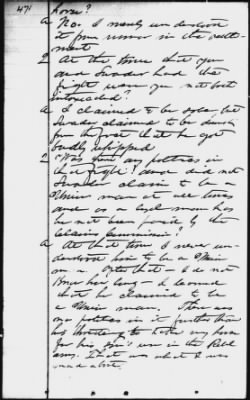 471
horse?
A No. I merely understood
it from rumor in the settle-
ment
Q At the time that you
and Swader had the
fight were you not both
intoxicated?
A I claimed to be sober but
Swader claimed to be drunk
from the fact that he got
badly whipped
Q Was there any politics in
that fight? and did not
Swader claim to be a
Union man at all times
and as a loyal man has
he not been paid by the
Claims Commission?
A At that time I never un-
derstood him to be a Union
man. After that I do not
know how long I learned
that he claimed to be
a Union man. There was
no politics in it further than
his threatening to take my horse
for his son's use in the Rebel
army. That was what I was
mad about.